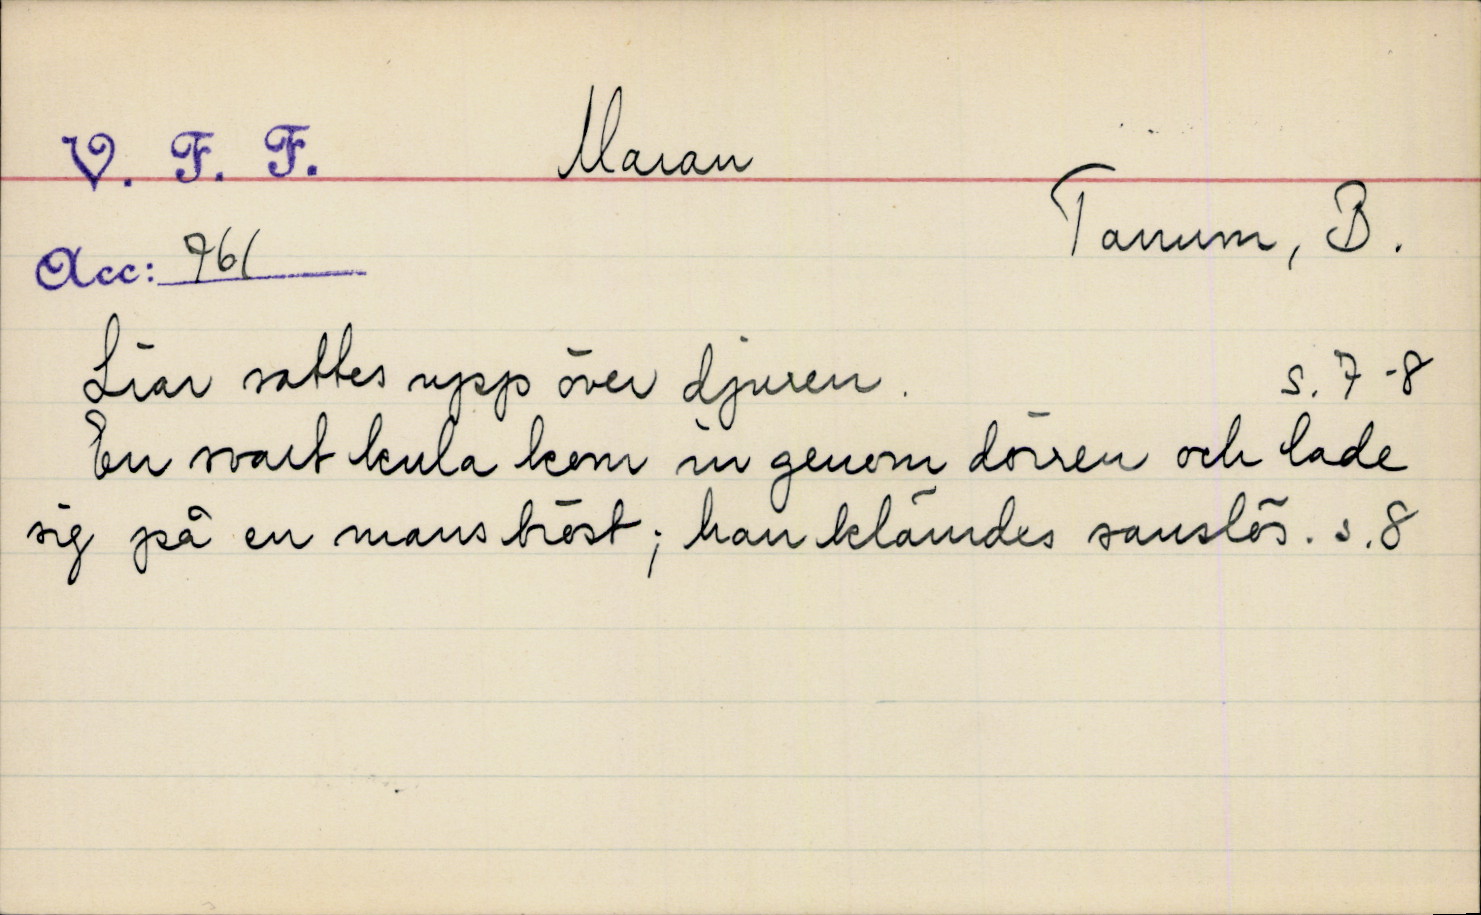 V. F. F. Maran
Tanum, B.
Acc: 761
Liar sattes upp över djuren. s. 7-8
En svart kula kom in genom dörren och lade
sig på en mans bröst; han klämdes sanslös. s. 8